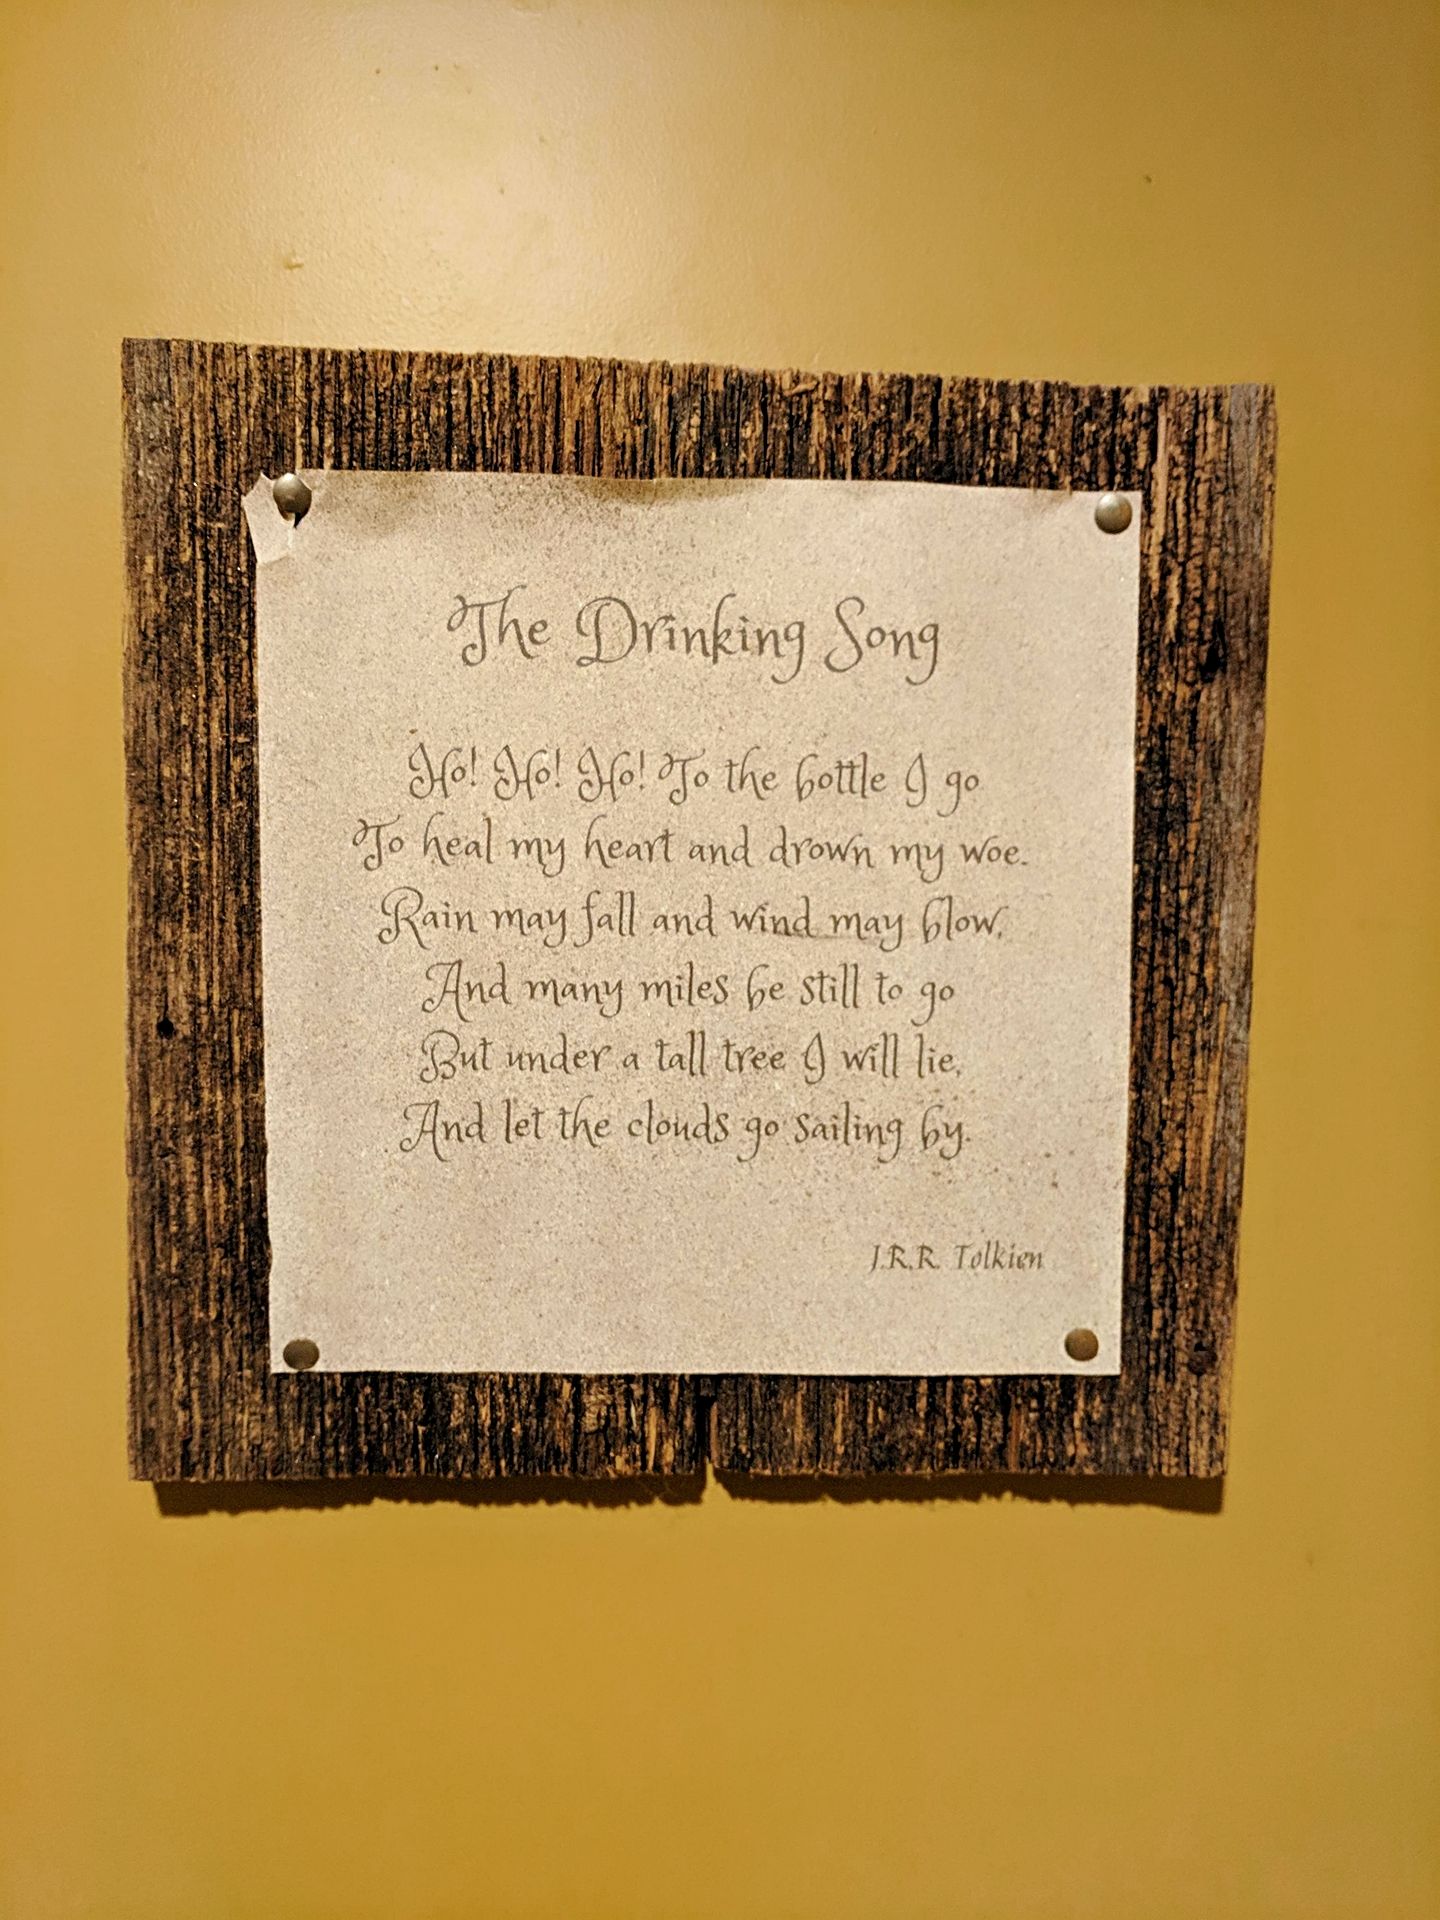 The Drinking Song
Ho! Ho! Ho! To the bottle I go
To heal my heart and drown my woe.
Rain may fall and wind may blow,
And many miles be still to go
But under a tall tree I will lie,
And let the clouds go sailing by.
J.R.R. Tolkien